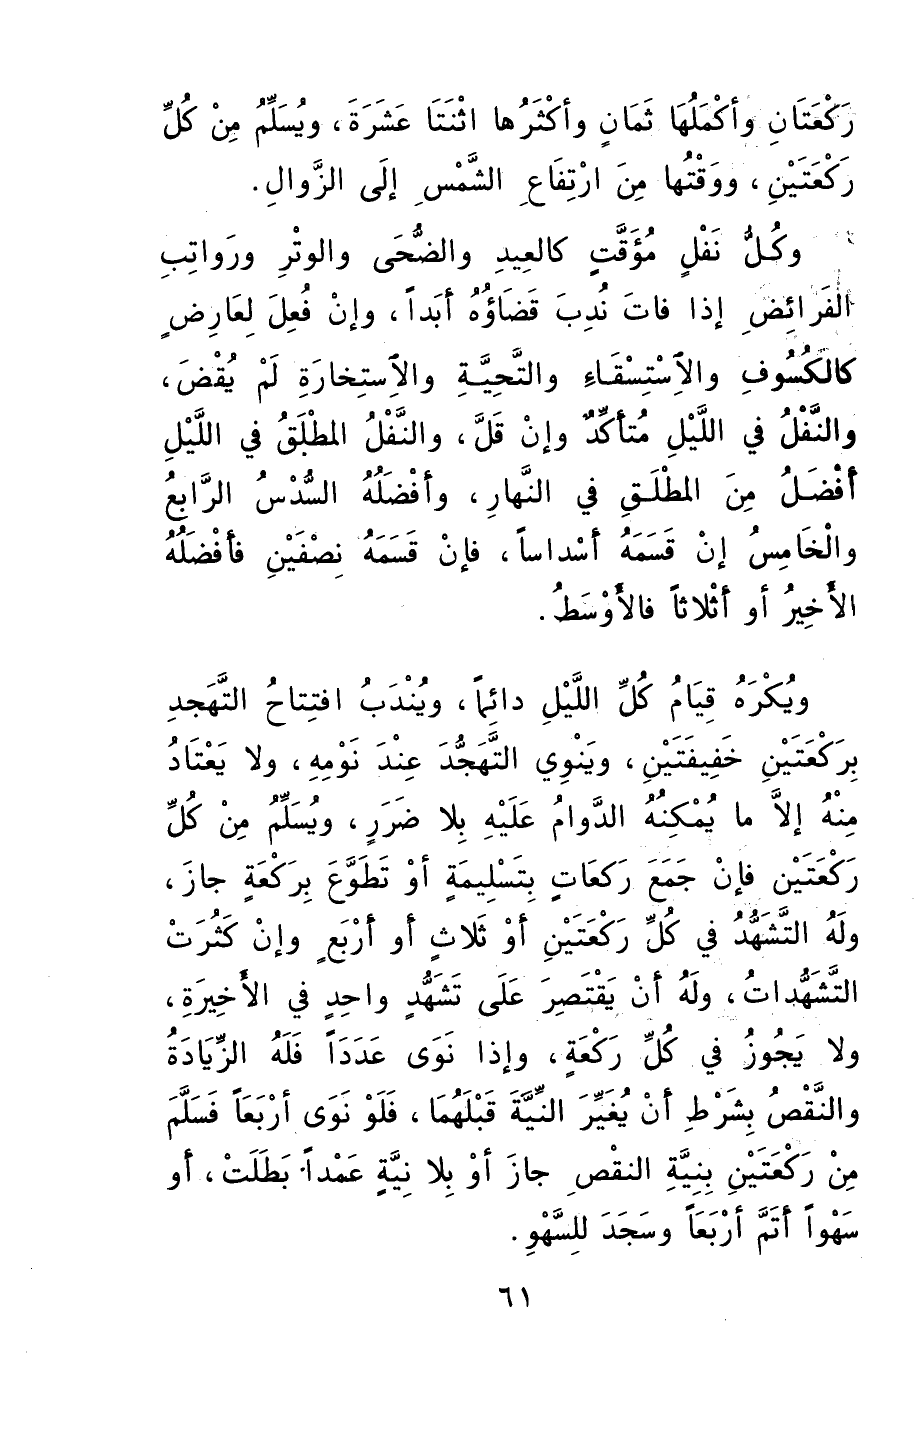 رَكْعَتَانِ وأكْمَلُهَا ثَمَانٍ وأكْثَرُها اثْنَتَا عَشَرَةَ، ويُسَلِّمُ مِنْ كُلِّ
رَكْعَتَيْنِ، ووَقْتُها مِنَ ارْتِفَاعِ الشَّمْسِ إلَى الزَّوالِ.
وكُلُّ نَفْلٍ مُؤَقَّتٍ كالعِيدِ والضُّحَى والوتْرِ ورَواتِبِ
الْفَرائِضِ إذا فاتَ نُدِبَ قَضَاؤُهُ أبَداً، وإنْ فُعِلَ لِعَارِضٍ
كالكُسُوفِ والاِسْتِسْقَاءِ والتَّحِيَّةِ والاِستِخارَةِ لَمْ يُقْضَ،
والنَّفْلُ في اللَّيْلِ مُتأكِّدٌ وإنْ قَلَّ، والنَّفْلُ المطْلَقُ في اللَّيْلِ
أفْضَلُ مِنَ المطْلَقِ في النَّهارِ، وأفْضَلُهُ السُّدْسُ الرَّابِعُ
والْخَامِسُ إنْ قَسَمَهُ أسْداساً، فإنْ قَسَمَهُ نِصْفَيْنِ فأفْضَلُهُ
الأَخِيرُ أو أثْلاثاً فالأَوْسَطُ.
ويُكْرَهُ قِيَامُ كُلِّ اللَّيْلِ دائِماً، ويُنْدَبُ افتِتاحُ التَّهَجدِ
بِرَكْعَتَيْنِ خَفِيفَتَيْنِ، وينوِي التَّهَجُّدَ عِنْدَ نَوْمِهِ، ولا يَعْتَادُ
مِنْهُ إلاَّ ما يُمْكِنُهُ الدَّوامُ عَلَيْهِ بِلا ضَرَرٍ، ويُسَلِّمُ مِنْ كُلِّ
رَكْعَتَيْن فإنْ جَمَعَ رَكعَاتٍ بِتَسْلِيمَةٍ أوْ تَطَوَّعَ بِرَكْعَةٍ جازَ،
ولَهُ التَّشَهُّدُ في كُلِّ رَكْعَتَيْنِ أوْ ثَلاثٍ أو أرْبَعٍ وإنْ كَثُرَتْ
التَّشَهُّداتُ، ولَهُ أنْ يَقْتَصِرَ عَلَى تَشَهُّدٍ واحِدٍ في الأَخِيرَةِ،
ولا يَجُوزُ في كُلِّ رَكْعَةٍ، وإذا نَوَى عَدَدَاً فَلَهُ الزِّيَادَةُ
والنَّقْصُ بِشَرْطِ أنْ يُغَيِّرَ النِّيَّةَ قَبْلَهُمَا، فَلَوْ نَوَى أرْبَعَاً فَسَلَّمَ
مِنْ رَكْعَتَيْنِ بِنِيَّةِ النقْصِ جازَ أوْ بِلا نِيَّةٍ عَمْداً بَطَلَتْ، أو
سَهْواً أتَمَّ أرْبَعَاً وسَجَدَ للِسَّهْوِ.
٦١